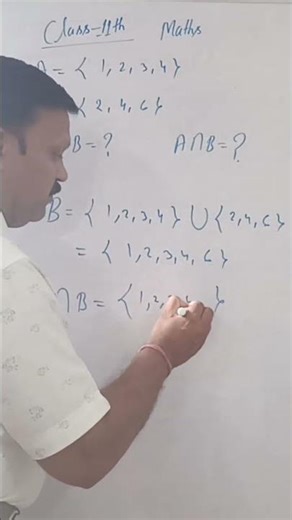 Class-11th Maths
A = { 1, 2, 3, 4 }
{ 2, 4, 6 }
B = ? A∩B = ?
B = { 1, 2, 3, 4 } ∪ { 2, 4, 6 }
= { 1, 2, 3, 4, 6 }
∩B = { 1, 2, 3, 4 }